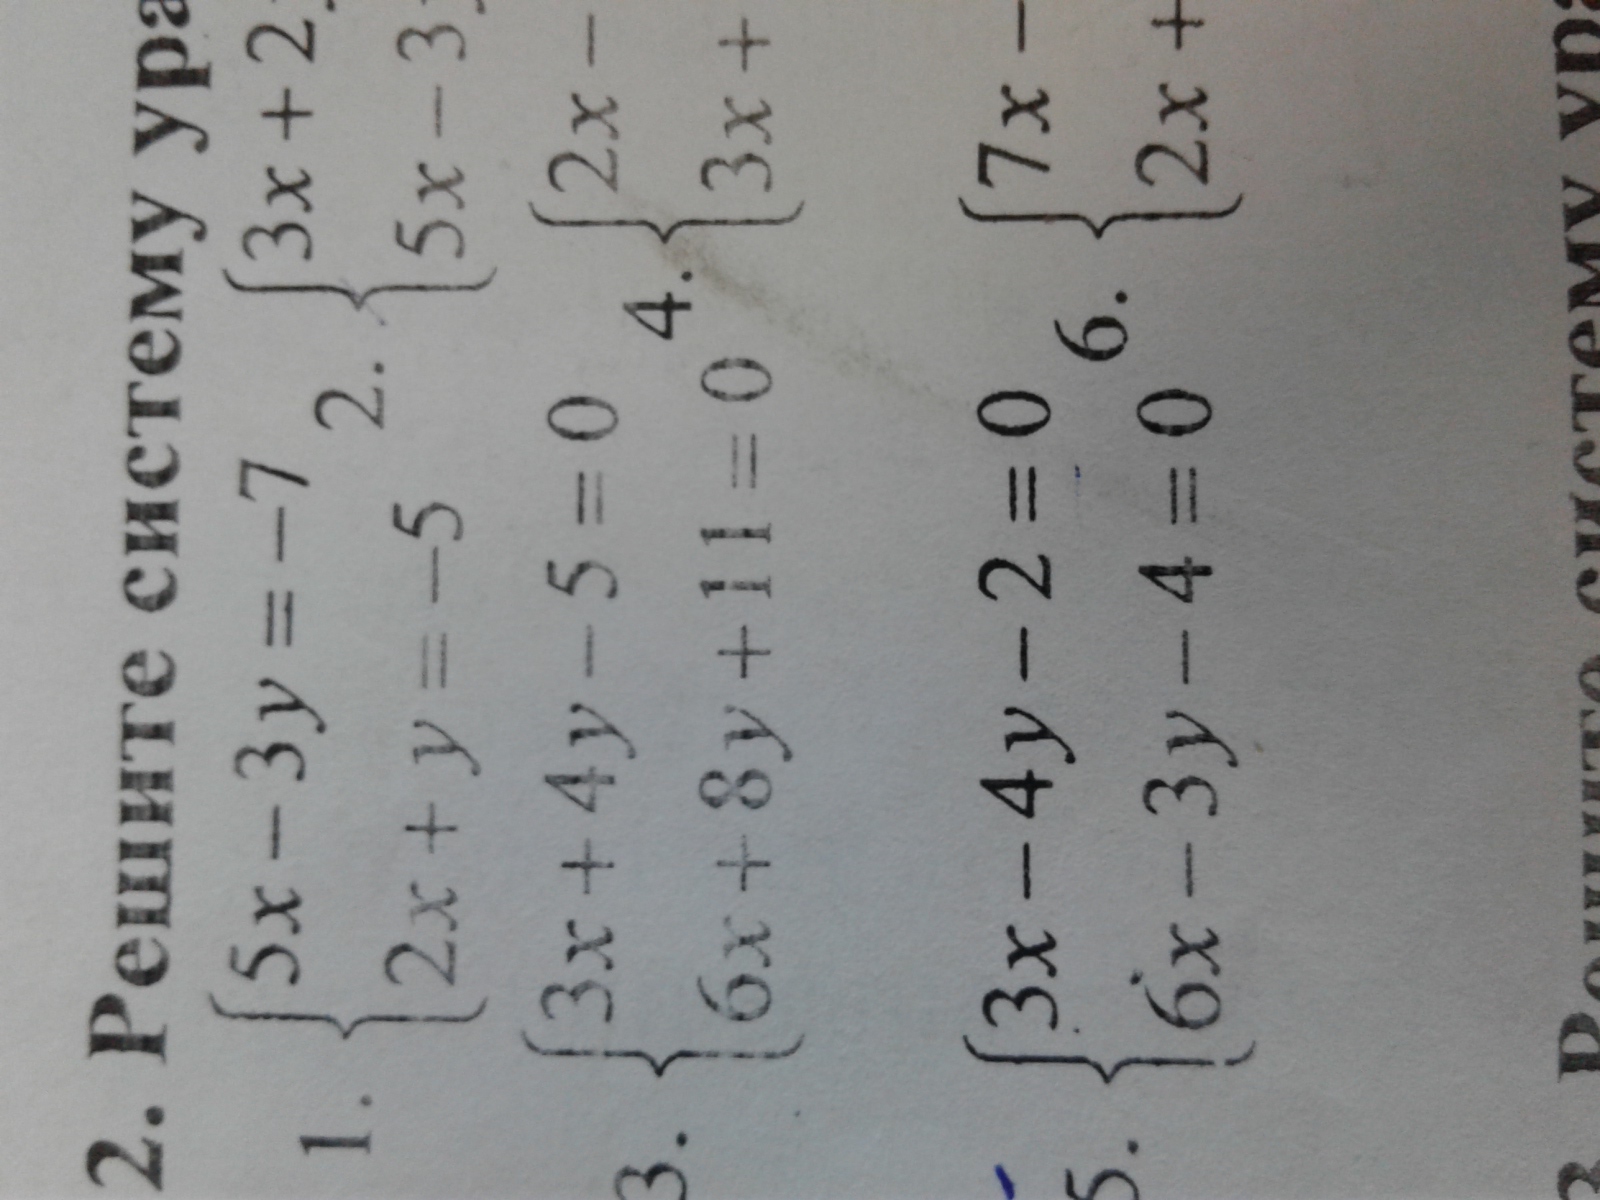 2. Решите систему ура
1. 5x − 3y = −7
2x + y = −5
2. 3x + 2y
5x − 3y
3. 3x + 4y − 5 = 0
6x + 8y + 11 = 0
4. 2x −
3x +
5. 3x − 4y − 2 = 0
6x − 3y − 4 = 0
6. 7x −
2x +
3. Решите систему ура